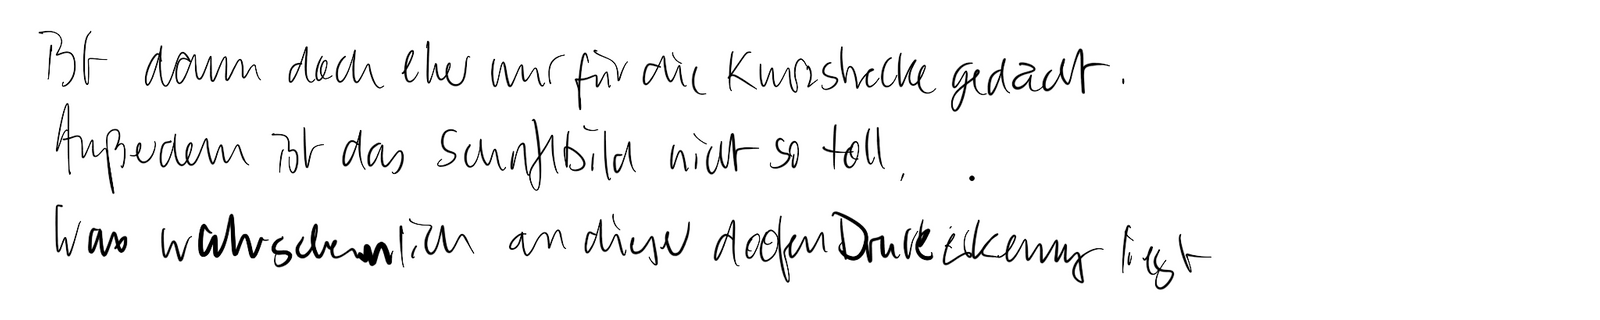 Ist dann doch eher nur für die Kurzstrecke gedacht.
Außerdem ist das Schriftbild nicht so toll,
Was wahrscheinlich an dieser doofen Druckerkennung liegt